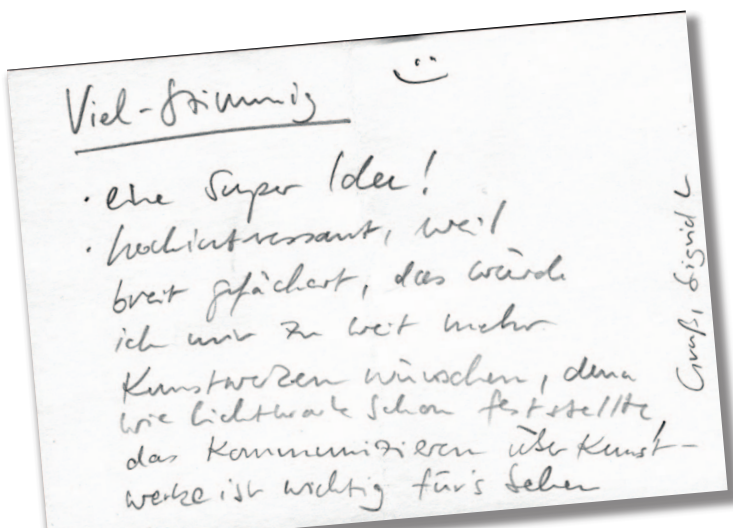 Viel-Stimmig
· eine Super Idee!
· hochintressant, weil
breit gefächert, das würde
ich mir zu weit mehr
Kunstwerken wünschen, denn
wie Lichtwark schon feststellte,
das Kommunizieren über Kunst-
werke ist wichtig für's Sehen
Gruß, Sigrid L